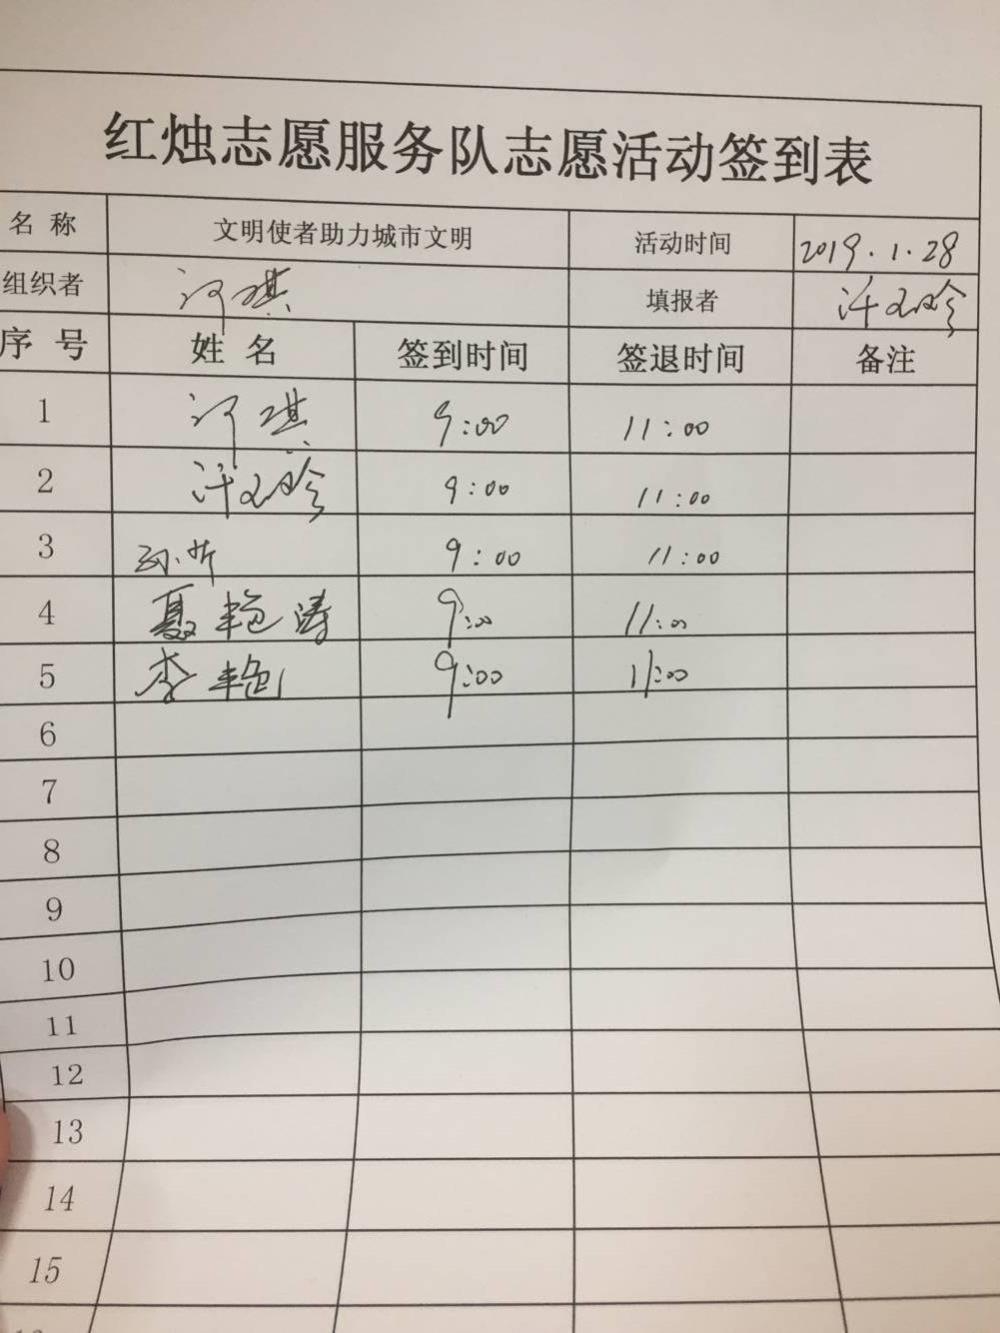 红烛志愿服务队志愿活动签到表
名 称 文明使者助力城市文明 活动时间 2019.1.28
组织者 许琪 填报者
序 号 姓 名 签到时间 签退时间 备注
1 许琪 9:00 11:00
2 9:00 11:00
3 孙昕 9:00 11:00
4 聂艳涛 9:00 11:00
5 李艳 9:00 11:00
6
7
8
9
10
11
12
13
14
15